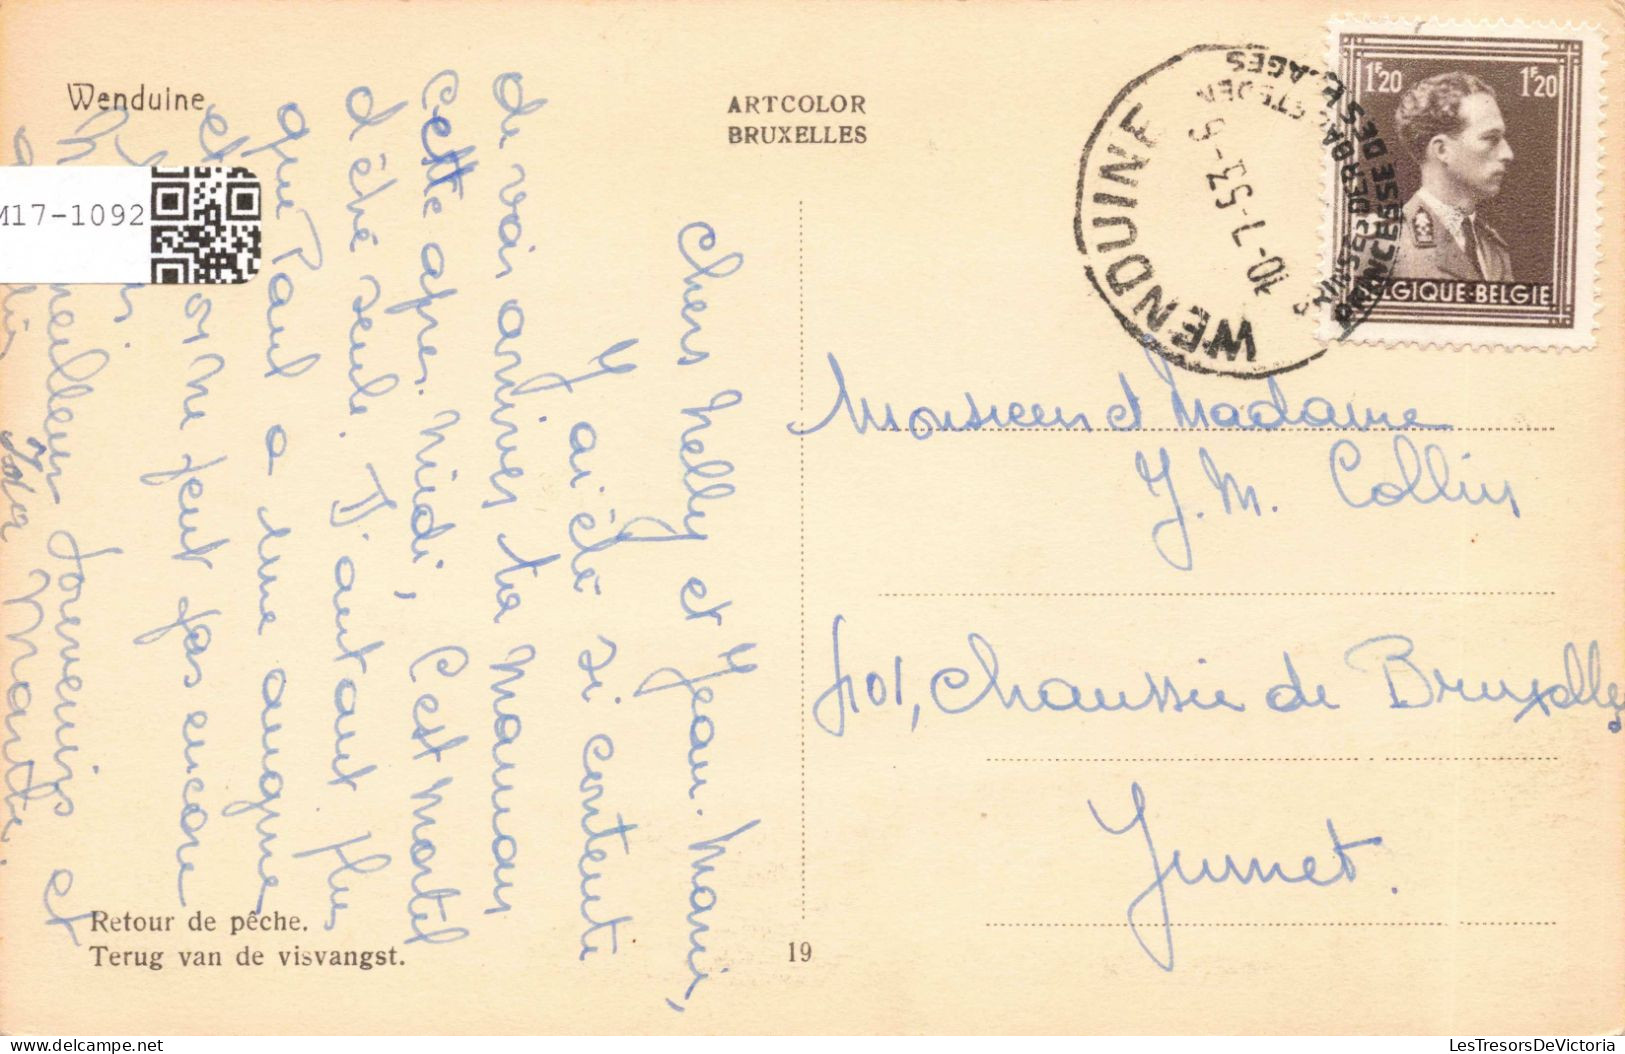 Wenduine
ARTCOLOR
BRUXELLES
WENDUINE
10-7-53-9
PRINSES DER BADSTEDEN
PRINCESSE DES PLAGES
1F20
1F20
BELGIQUE-BELGIE
M17-1092
Chers Nelly et Jean-Marie,
J'ai été si contente
de voir arriver ta Maman
cette apres. midi, c'est mortel
d'être seule. D'autant plus
que Paul a une angine
et ne peut pas encore
meilleurs souvenirs et
Monsieur et Madame
J. M. Collin
401, Chaussée de Bruxelles
Jumet.
Retour de pêche.
Terug van de visvangst.
19
LesTresorsDeVictoria